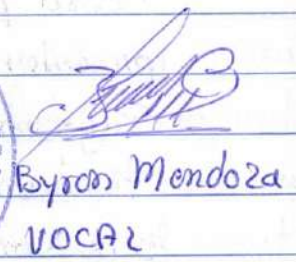 Byron Mendoza
VOCAL